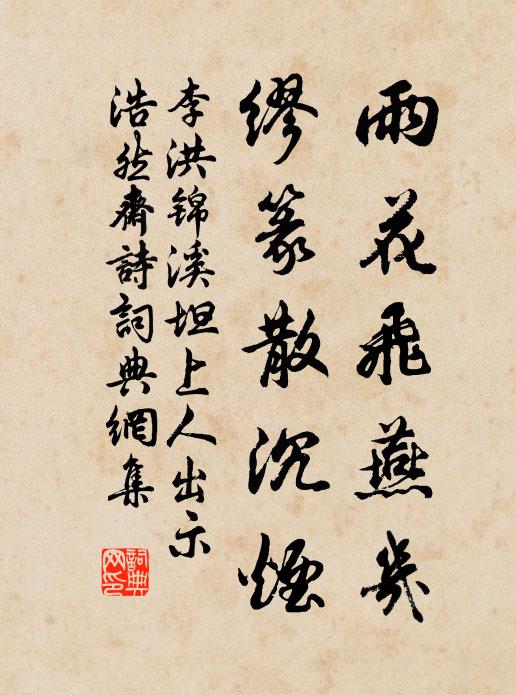 雨花飛燕几
繆篆散沉煙
李洪锦溪坦上人出示
浩然齋詩詞典網集
詞典网印